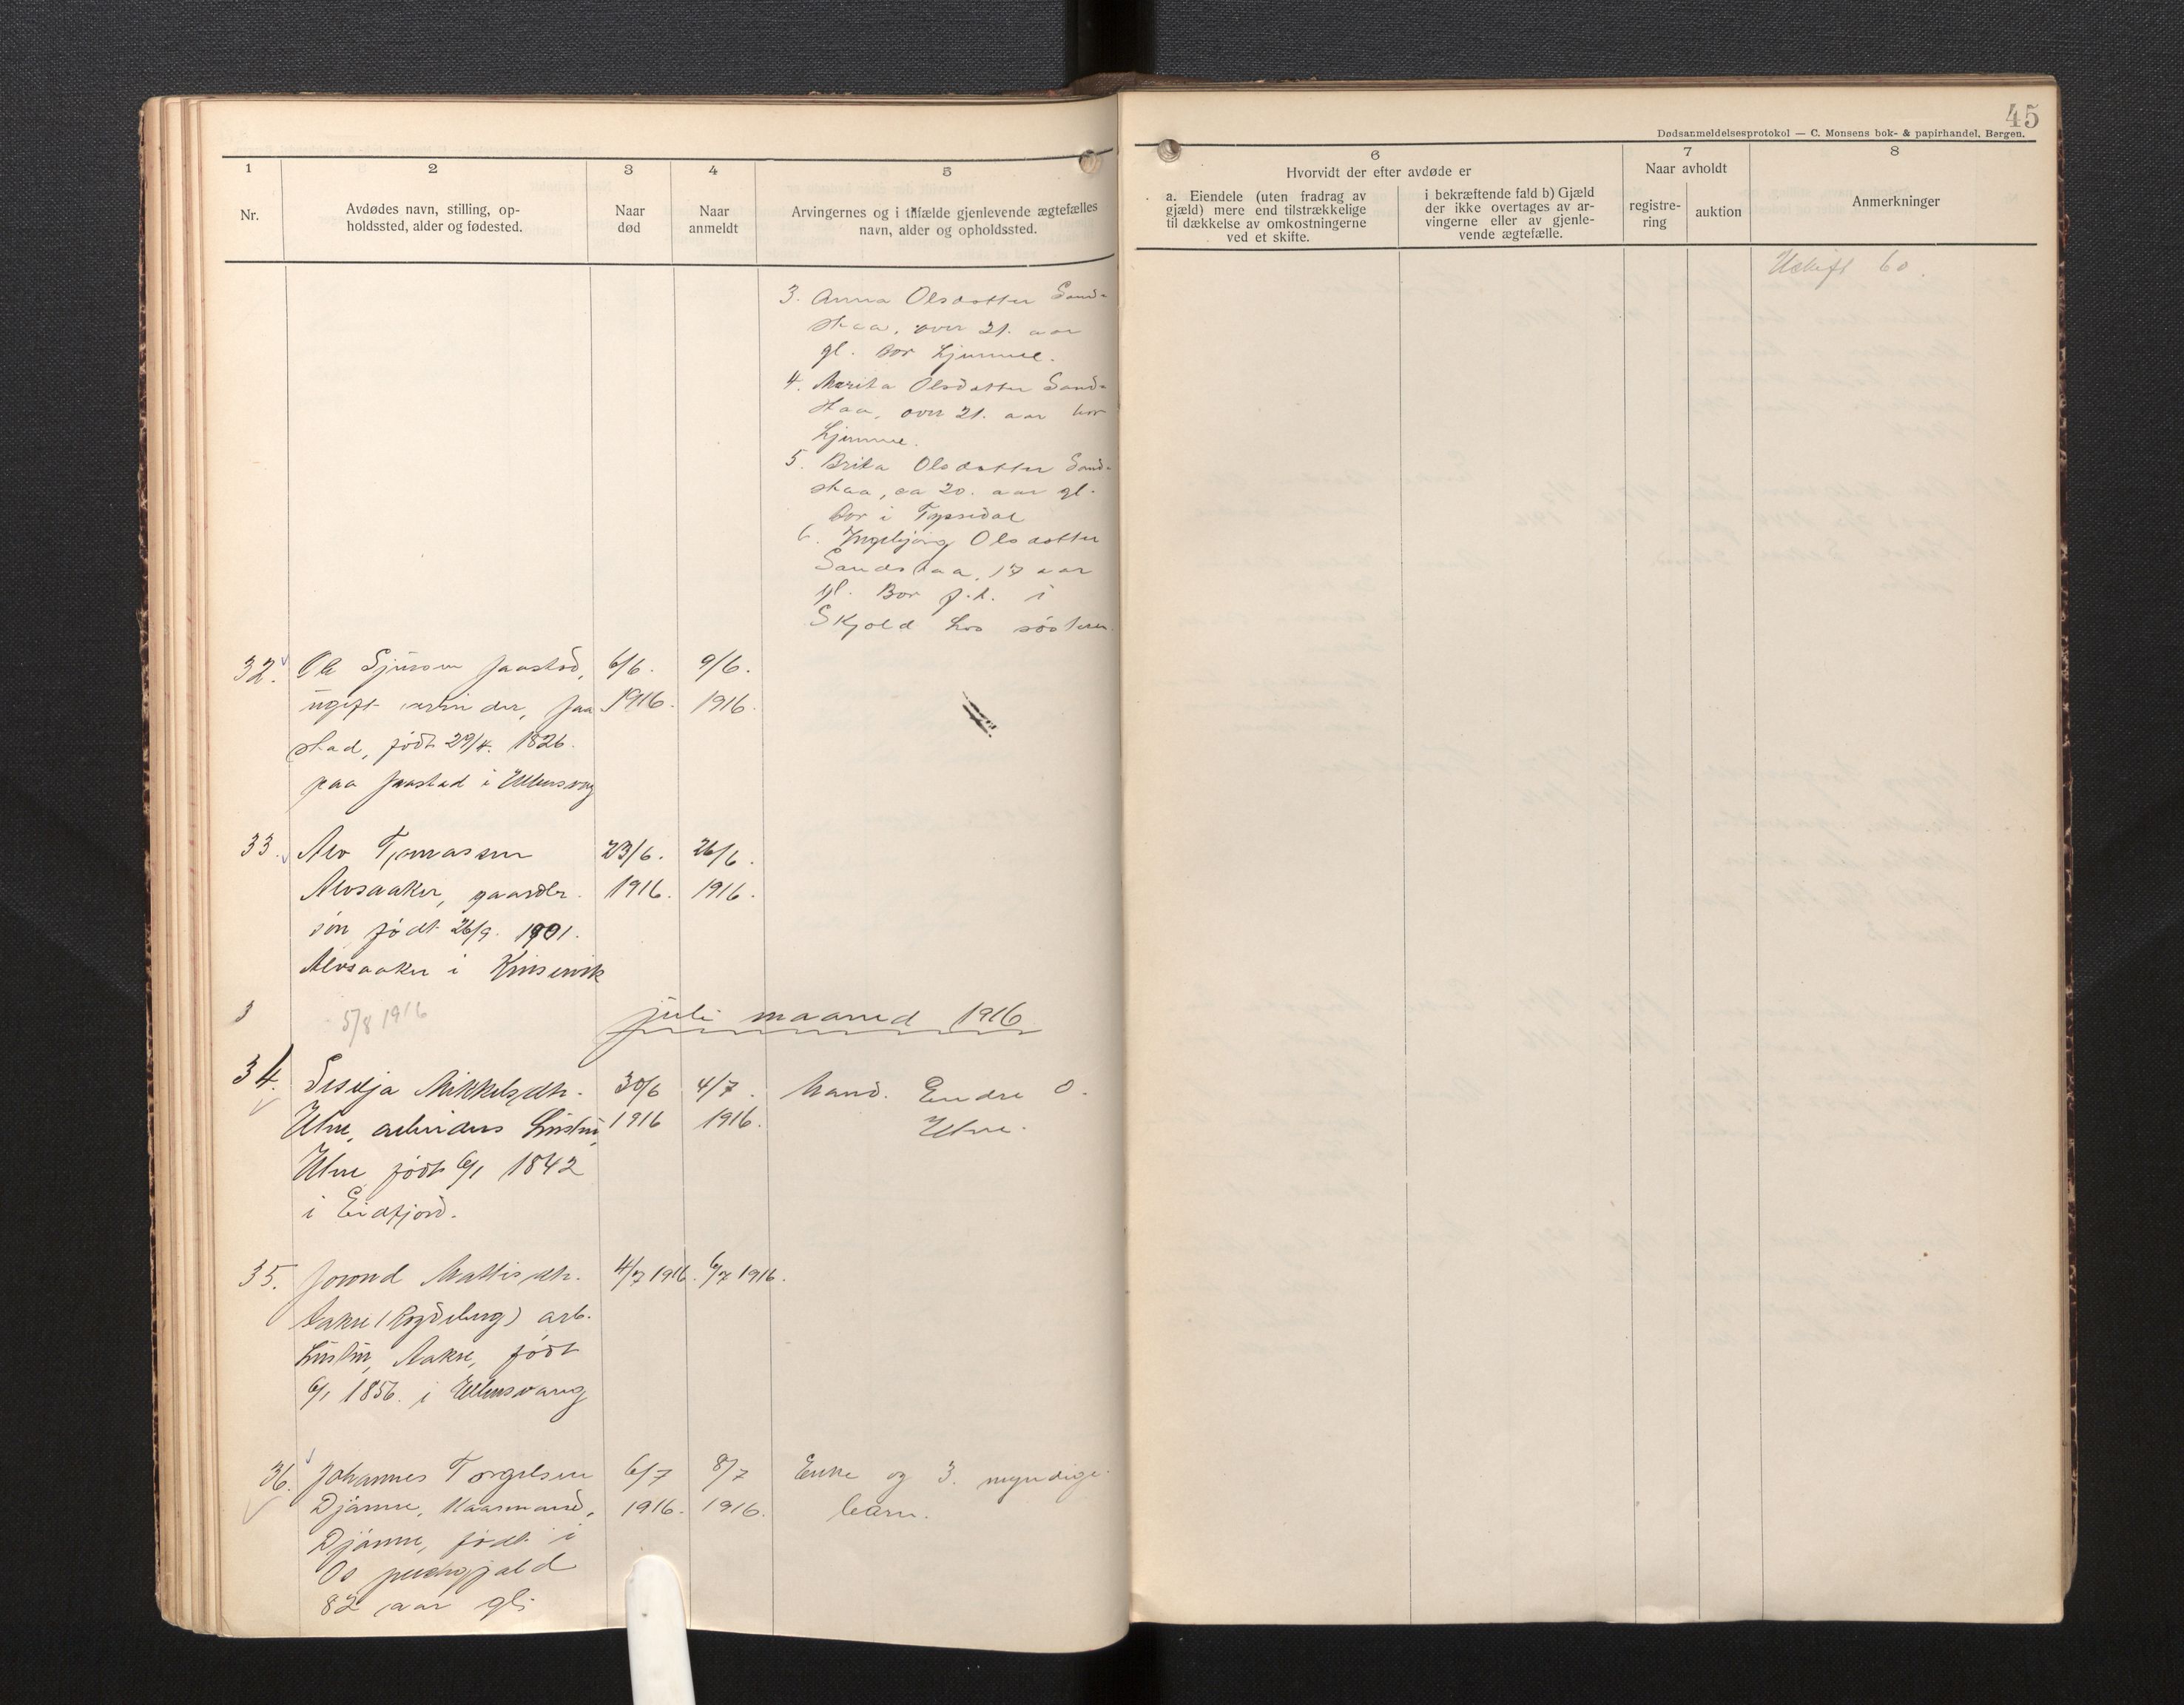 45
Dødsanmeldelsesprotokol — C. Monsens bok- & papirhandel, Bergen.
1
2
3
4
5
Nr.
Avdødes navn, stilling, op-
holdssted, alder og fødested.
Naar
død
Naar
anmeldt
Arvingernes og i tilfælde gjenlevende ægtefælles
navn, alder og opholdssted.
6
Hvorvidt der efter avdøde er
a. Eiendele (uten fradrag av
gjæld) mere end tilstrækkelige
til dækkelse av omkostningerne
ved et skifte.
i bekræftende fald b) Gjæld
der ikke overtages av ar-
vingerne eller av gjenle-
vende ægtefælle.
7
Naar avholdt
registre-
ring
auktion
8
Anmerkninger
60.
3. Anna Olsdotter Sand-
staa, over 21. aar
gl. bor
4. Marita Olsdotter Sand-
staa, over 21. aar bor
5. Brita Olsdotter Sand-
staa, ca 20. aar gl.
bor i Tyssedal
6. Ingebjörg Olsdotter
Sandstaa, 17 aar
gl. Bor f.t. i
Skjold hos søsteren.
32. Ole Sjursen Jaastad, 6/6. 9/6.
ugift arbeider, Jaa 1916. 1916.
stad, født 29/4. 1826.
paa Jaastad i Ullensvang
33. Alv Tomassen 23/6. 26/6.
Alvsaaker, gaardbr. 1916. 1916.
søn født 26/9. 1901.
Alvsaaker i Kinservik
3 5/8 1916 juli maaned 1916
34. Seselja Mikkelsdtr. 30/6 4/7. Mand. Endre O.
Utne, arbeiders hustru, 1916 1916. Utne.
Utne født 6/1 1842
i Eidfjord.
35. Jorond Mattisdtr. 4/7 1916. 6/7 1916.
Aakre (Røgdeberg) arb.
hustru, Aakre, født
6/1 1856. i Ullensvang
36. Johannes Torgilsen 6/7 8/7 Enke og 3. myndige
Djønne, kaarmand, 1916. 1916. barn.
Djønne, født i
Os prestegjeld
82 aar gl.